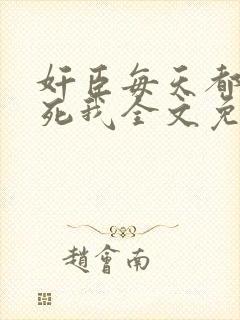 奸臣每天都
死我全文免
趙會南